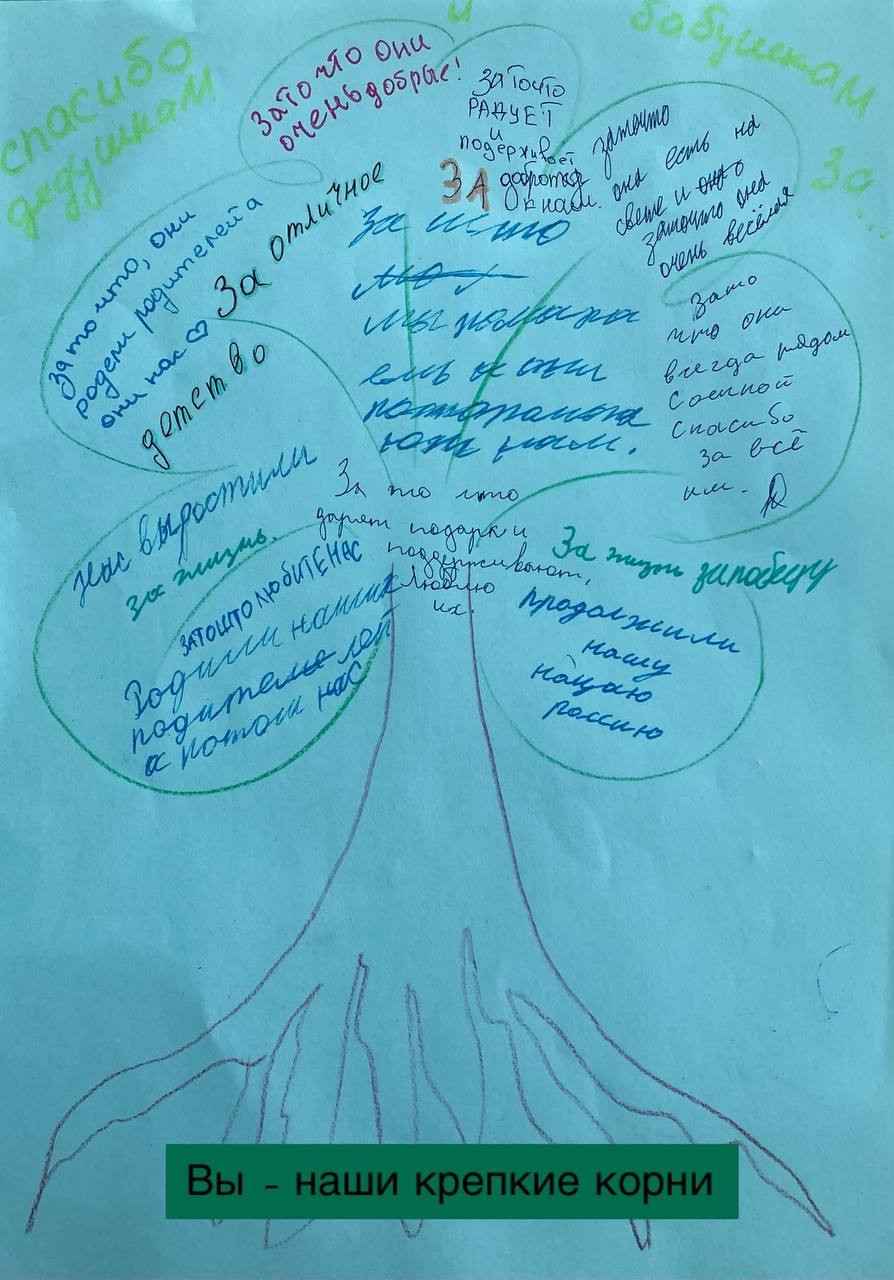 спасибо
дедушкам
и
бабушкам
за...
За то что они
очень добрые!
за тошто
РАДУЕТ
и
подерживает
ЗА
доброта
к нам.
заточто
она есть на
свете и
заточто она
очень весёлая
За то что, они
родели родителей а
они нас
За отличное
детство
За што
мы
ему и они
нам.
Зато
что они
всегда рядом
сомной
спасибо
за всё
им.
нас выростили
за жизнь.
За то што
дарят подарки
поддерживают,
Люблю
их.
ЗАТОШТО ЛЮБИТЕ НАС
Родили наших
родителей
а потом нас
За жизнь за победу
продолжили
нашу
нацию
россию
Вы - наши крепкие корни